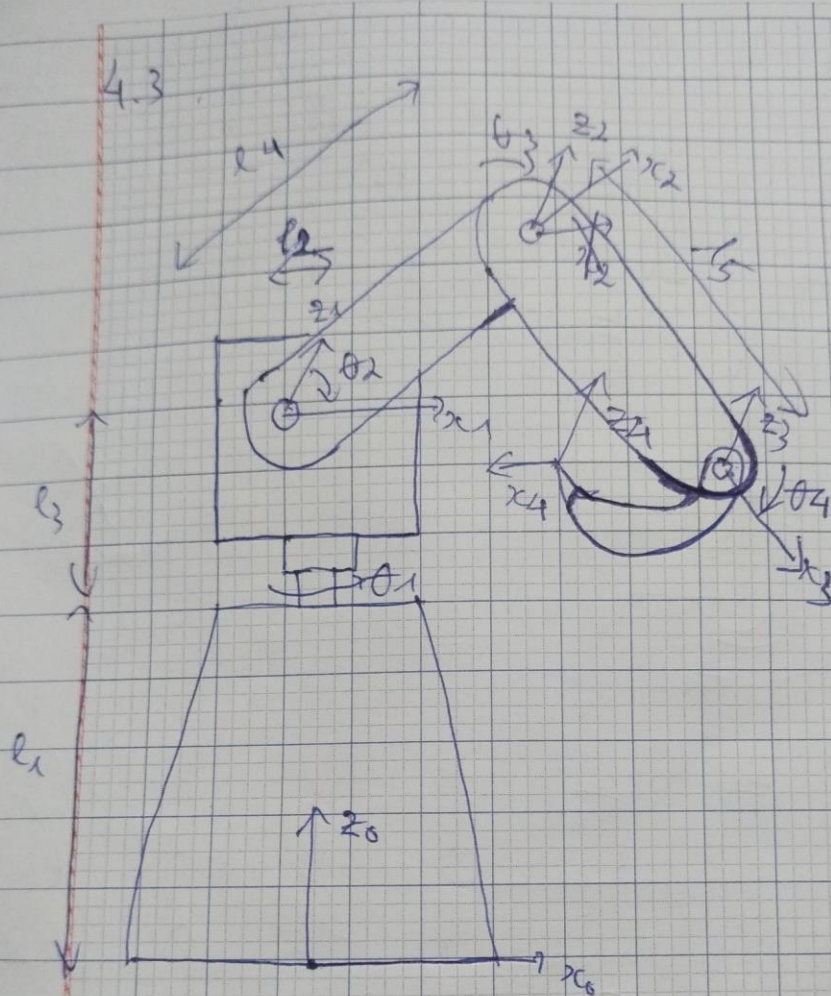 4.3
l4
θ3
z2
x2
l2
x2
l5
z1
θ2
x1
z4
z3
x4
θ4
l3
x3
θ1
l1
z0
x0